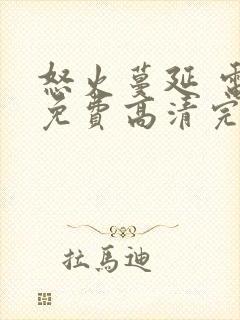 怒火蔓延 電
免費高清完
拉馬迪